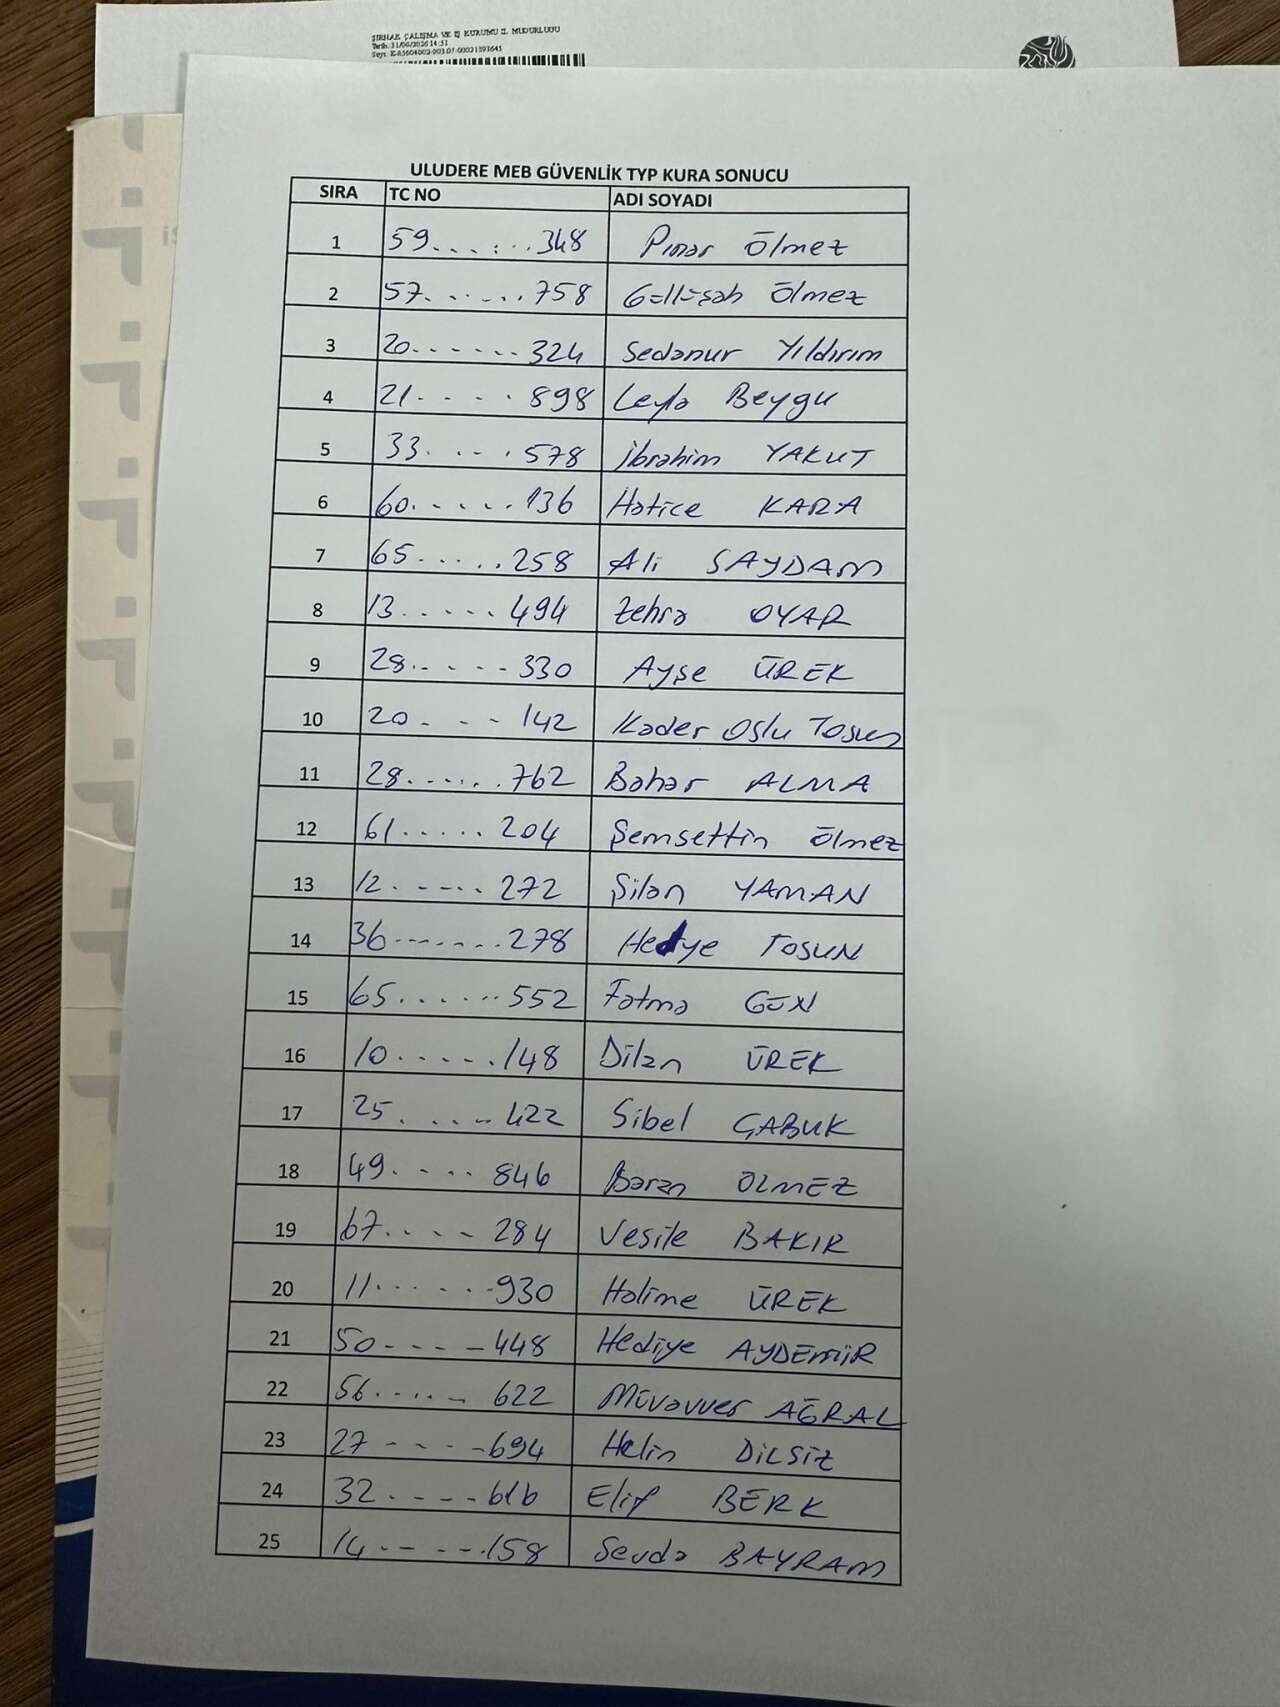 ŞIRNAK ÇALIŞMA VE İŞ KURUMU İL MÜDÜRLÜĞÜ
ULUDERE MEB GÜVENLİK TYP KURA SONUCU
SIRA TC NO ADI SOYADI
1 59.......348 Pınar Ölmez
2 57.......758 Güllüşah Ölmez
3 20.......324 Sedanur Yıldırım
4 21.....898 Leyla Beygu
5 33.....578 İbrahim YAKUT
6 60......136 Hatice KARA
7 65......258 Ali SAYDAM
8 13......494 Zehra OYAR
9 28......330 Ayşe ÜREK
10 20....142 Kader Oşlu Tosun
11 28.......762 Bahar ALMA
12 61......204 Şemsettin Ölmez
13 12......272 Şilan YAMAN
14 36........278 Hediye TOSUN
15 65.......552 Fatma GÜN
16 10......148 Dilan ÜREK
17 25......422 Sibel ÇABUK
18 49.....846 Baran ÖLMEZ
19 67.....284 Vesile BAKIR
20 11.......930 Halime ÜREK
21 50.....448 Hediye AYDEMİR
22 56......622 Müvavver AĞRAL
23 27.....694 Helin DİLSİZ
24 32.....616 Elif BERK
25 14......158 Sevda BAYRAM